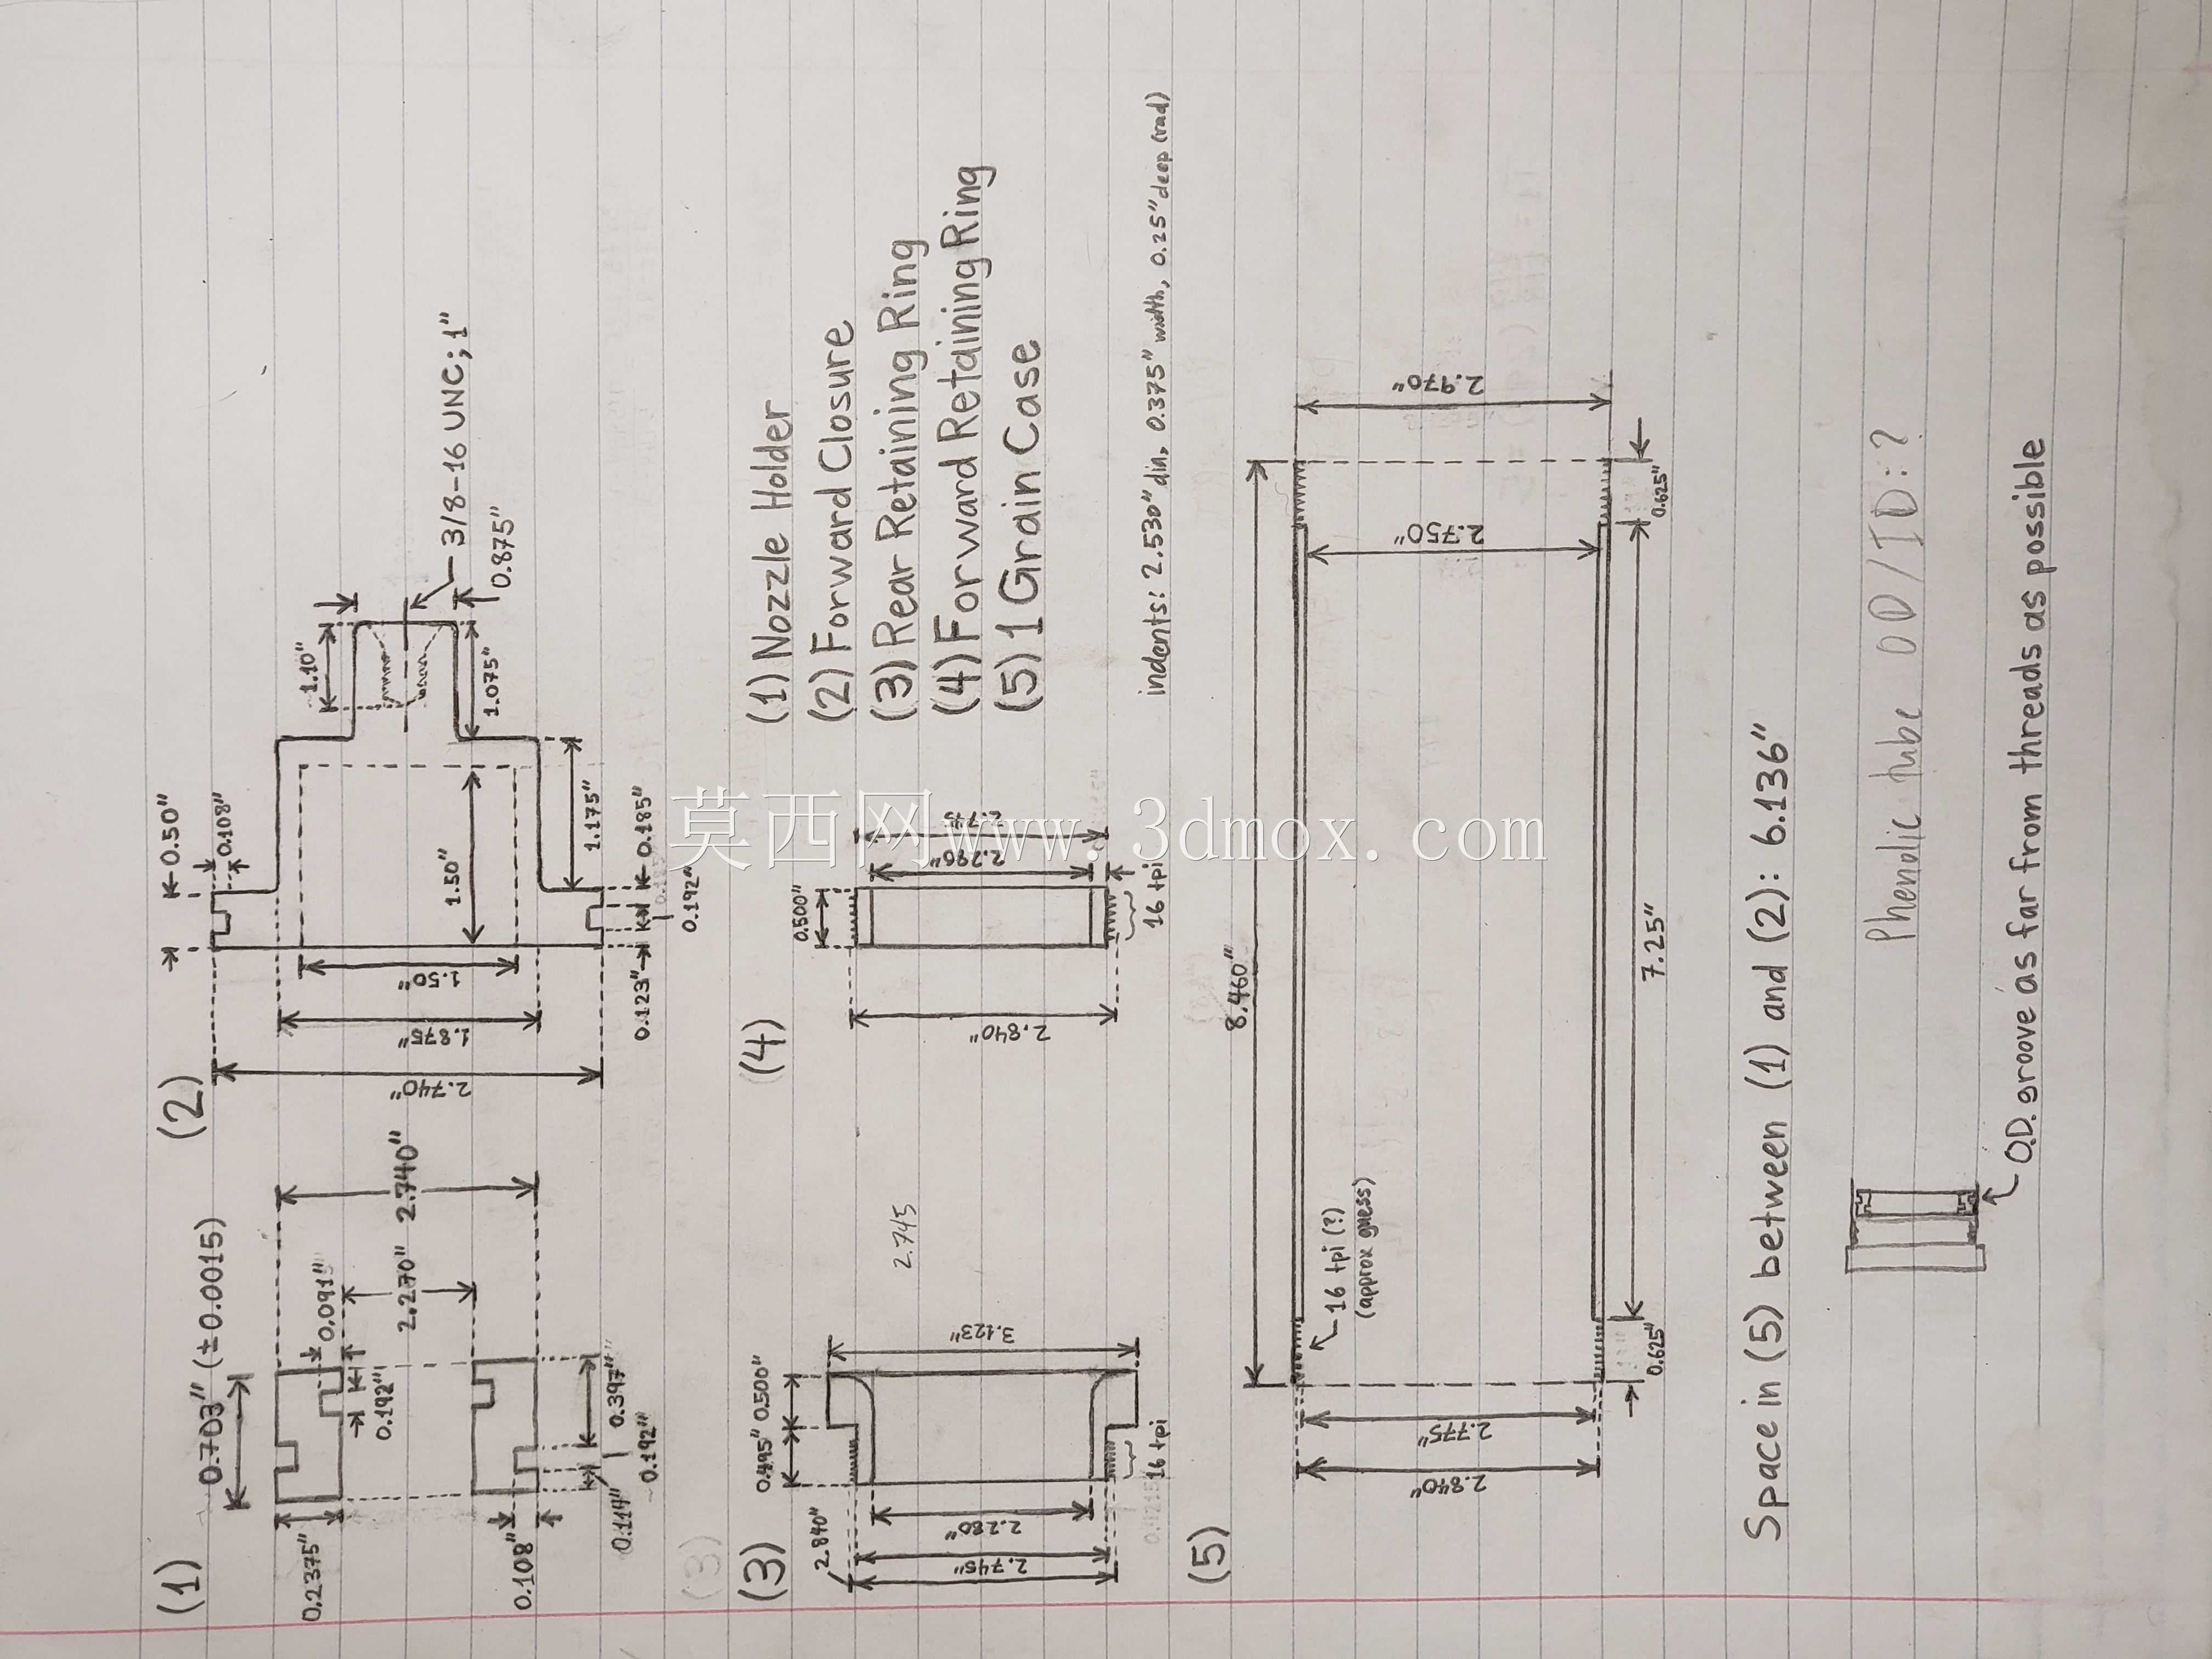 (1)
0.703" (± 0.0015)
0.2375"
0.091"
0.192"
2.270"
2.740"
0.108"
0.114"
0.192"
0.397"
(2)
0.50"
0.108"
1.10"
3/8-16 UNC; 1"
0.875"
1.075"
1.50"
1.50"
1.875"
2.740"
1.175"
0.185"
0.192"
0.123"
(3)
0.495"
0.500"
3.123"
2.840"
2.280"
2.745"
16 tpi
2.745
(4)
0.500"
2.745"
2.840"
16 tpi
(1) Nozzle Holder
(2) Forward Closure
(3) Rear Retaining Ring
(4) Forward Retaining Ring
(5) 1 Grain Case
indents: 2.530" dia, 0.375" width, 0.25" deep (rad)
(5)
8.460"
2.970"
2.750"
0.625"
7.25"
0.625"
16 tpi (?)
(approx guess)
2.775"
2.840"
Space in (5) between (1) and (2): 6.136"
Phenolic tube OD/ID: ?
O.D. groove as far from threads as possible
莫西网www.3dmox.com